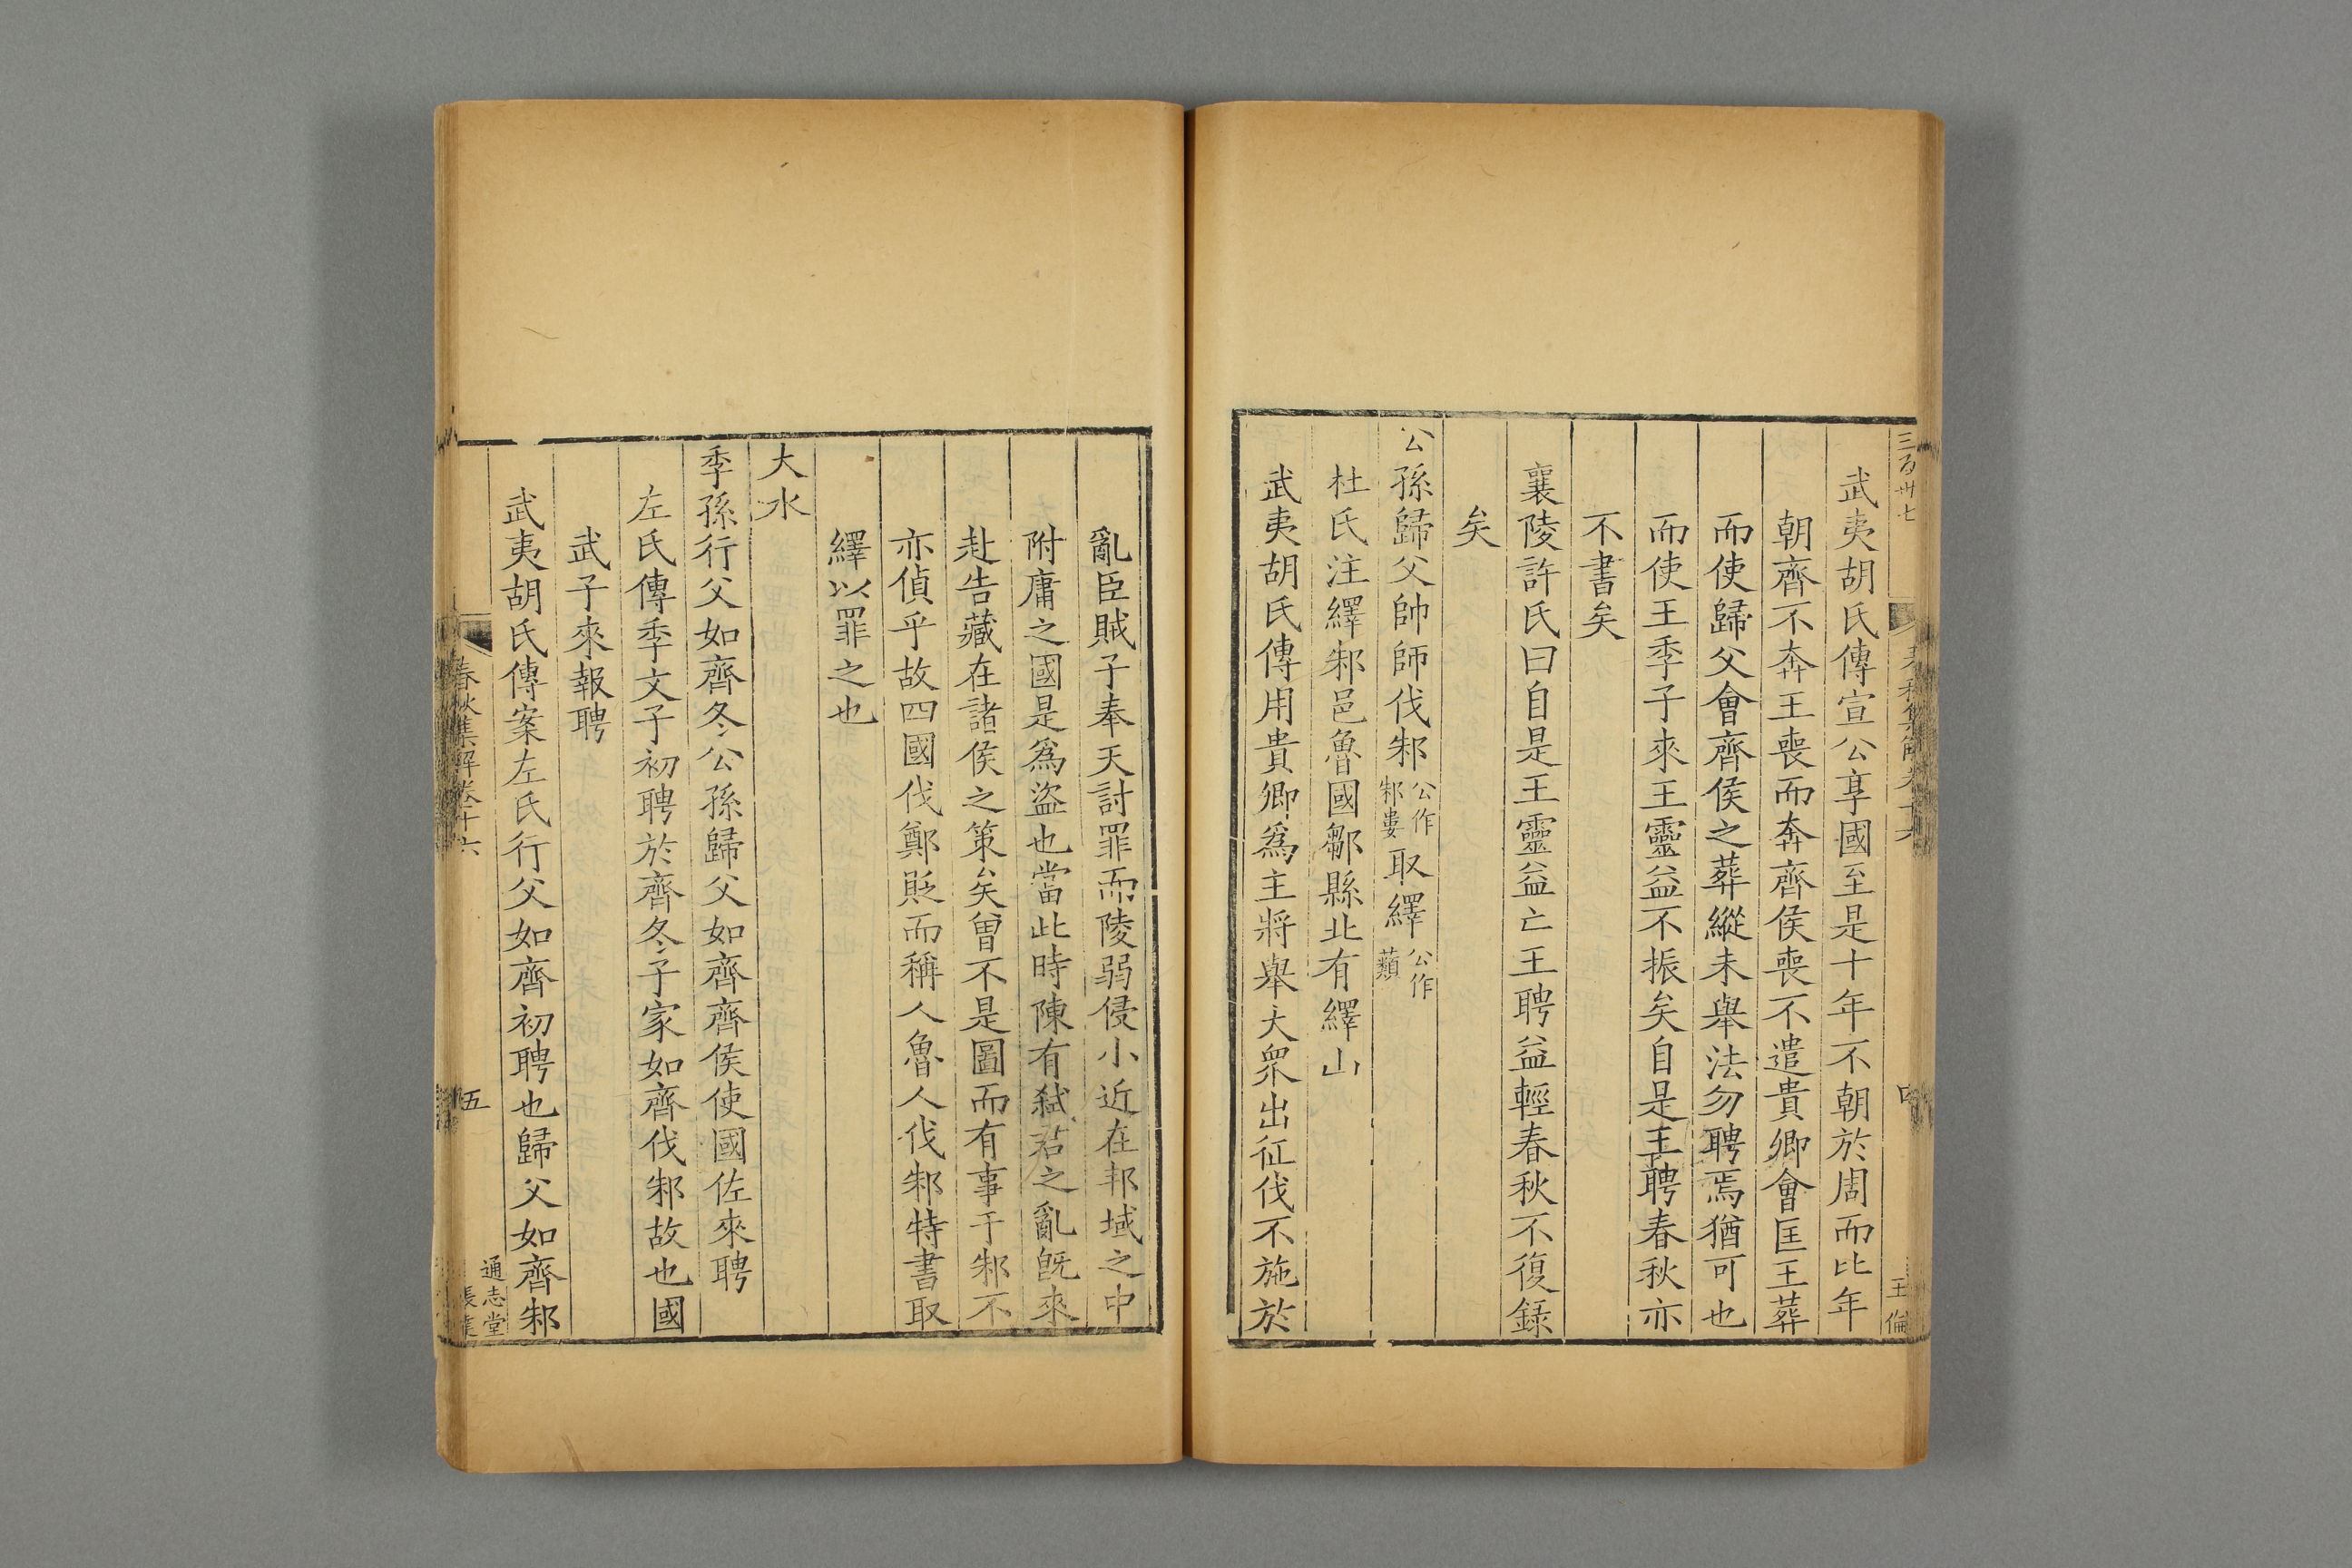 三百卌七
春秋集解卷十六
四
王倫
武夷胡氏傳宣公享國至是十年不朝於周而比年
朝齊不奔王喪而奔齊侯喪不遣貴卿會匡王葬
而使歸父會齊侯之葬縱未舉法勿聘焉猶可也
而使王季子來王靈益不振矣自是王聘春秋亦
不書矣
襄陵許氏曰自是王靈益亡王聘益輕春秋不復錄
矣
公孫歸父帥師伐邾公作邾婁取繹公作蘱
杜氏注繹邾邑魯國鄒縣北有繹山
武夷胡氏傳用貴卿爲主將舉大衆出征伐不施於
亂臣賊子奉天討罪而陵弱侵小近在邦域之中
附庸之國是爲盜也當此時陳有弑君之亂旣來
赴告藏在諸侯之策矣曾不是圖而有事于邾不
亦傎乎故四國伐鄭貶而稱人魯人伐邾特書取
繹以罪之也
大水
季孫行父如齊冬公孫歸父如齊齊侯使國佐來聘
左氏傳季文子初聘於齊冬子家如齊伐邾故也國
武子來報聘
武夷胡氏傳案左氏行父如齊初聘也歸父如齊邾
春秋集解卷十六
五
通志堂